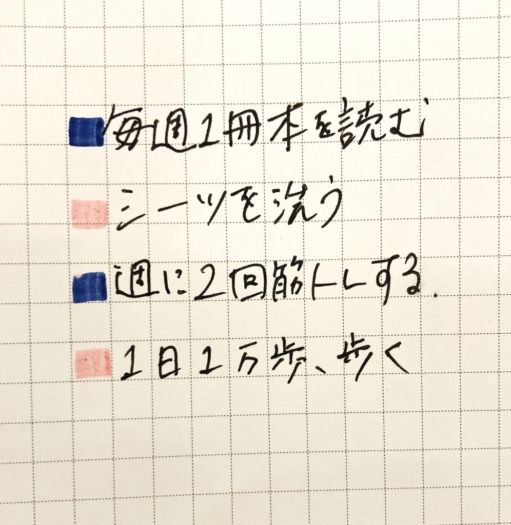 毎週1冊本を読む
シーツを洗う
週に2回筋トレする.
1日1万歩、歩く